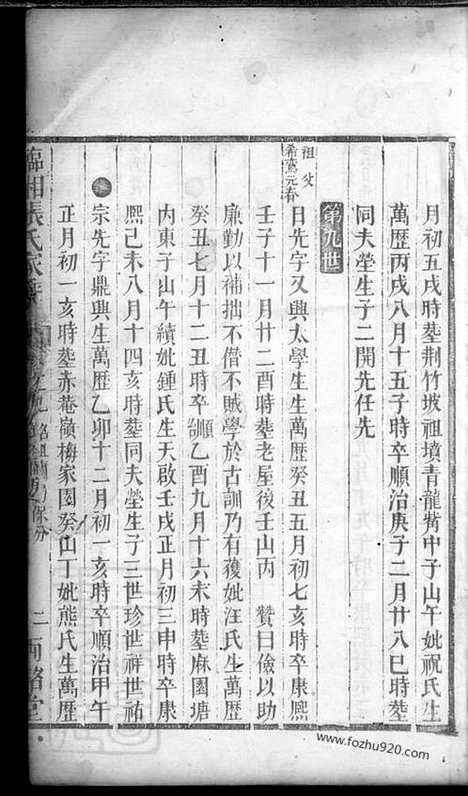 月初五戌時塟荆竹坡祖墳青龍觜中子山午妣祝氏生
萬歷丙戌八月十五子時卒順治庚子二月廿八巳時塟
同夫塋生子二開先任先
第九世
祖 父
希鸞元春
日先字又興太學生生萬歷癸丑五月初七亥時卒康熙
壬子十一月廿二酉時塟老屋後壬山丙 贊曰儉以助
廉勤以補拙不僭不賊學於古訓乃有獲妣汪氏生萬歷
癸丑七月十二丑時卒順治乙酉九月十六未時塟麻園塘
内東子山午續妣鍾氏生天啟壬戌正月初三申時卒康
熙己未八月十四亥時塟同夫塋生子三世珍世祥世祐
宗先字鼎興生萬歷乙卯十二月初一亥時卒順治甲午
正月初一亥時塟赤菴嶺梅家園癸山丁妣熊氏生萬歷
臨湘張氏家譜
二
百忍堂
www.fozhu920.com